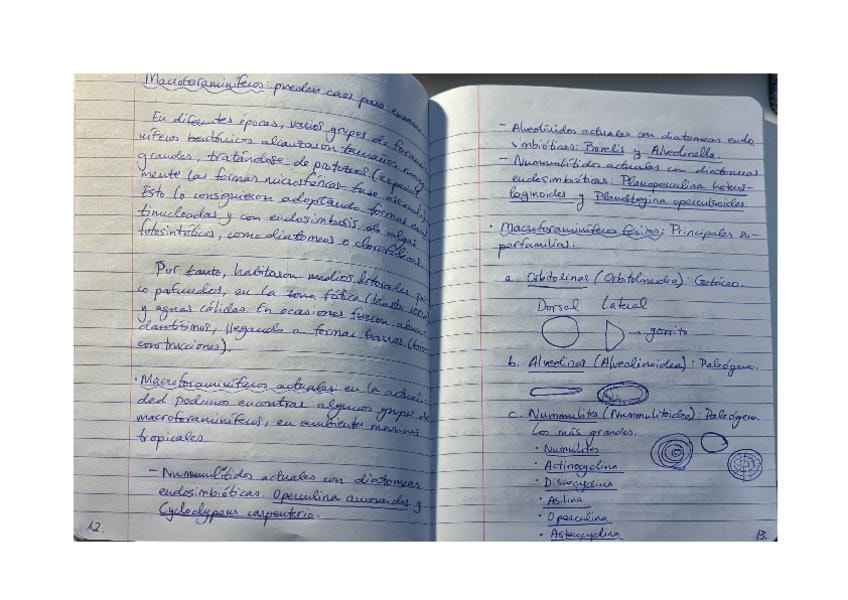 Macroforaminíferos: pueden caer para examen
En diferentes épocas, varios grupos de foram
níferos bentónicos alcanzaron tamaños muy
grandes, tratándose de protozoos (especial
mente las formas microsféricas fase asexual
Esto lo consiguieron adoptando formas mul
tinucleadas y con endosimbiosis de algas
fotosintéticas, como diatomeas o clorofíceas.
Por tanto, habitaron medios litorales po
co profundos, en la zona fótica (hasta 100m)
y aguas cálidas. En ocasiones fueron abun
dantísimos, llegando a formar barras (bio
construcciones).
· Macroforaminíferos actuales: en la actuali
dad podemos encontrar algunos grupos de
macroforaminíferos, en ambientes marinos
tropicales
- Nummulítidos actuales con diatomeas
endosimbióticas: Operculina ammonoides y
Cycloclypeus carpenterio.
12.
- Alveolínidos actuales con diatomeas endo
simbióticas: Borelis y Alveolinella.
- Nummulítidos actuales con diatomeas
endosimbióticas: Planoperculina heteros-
teginoides y Planostegina operculinoides.
• Macroforaminíferos fósiles: Principales su-
perfamilias:
a. Orbitolinas (Orbitolinoidea): Cretáceo.
Dorsal Lateral
→ gorrito
b. Alveolinas (Alveolinoidea): Paleógeno.
c. Nummulites (Nummulitoidea): Paleógeno.
Los más grandes.
· Numulites
· Actinocyclina
· Discocyclina
· Asilina
· Operculina
· Asterocyclina
13.